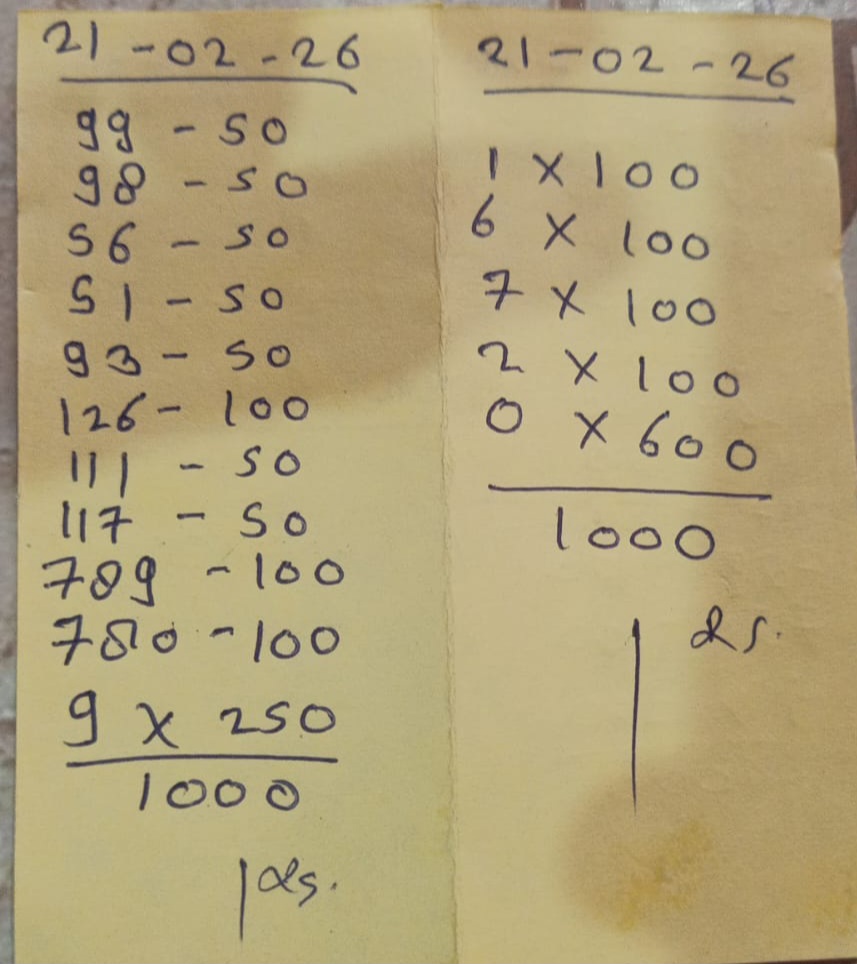 21-02-26
99 - 50
98 - 50
56 - 50
51 - 50
93 - 50
126 - 100
111 - 50
117 - 50
789 - 100
780 - 100
9 X 250
1000
21-02-26
1 X 100
6 X 100
7 X 100
2 X 100
0 X 600
1000